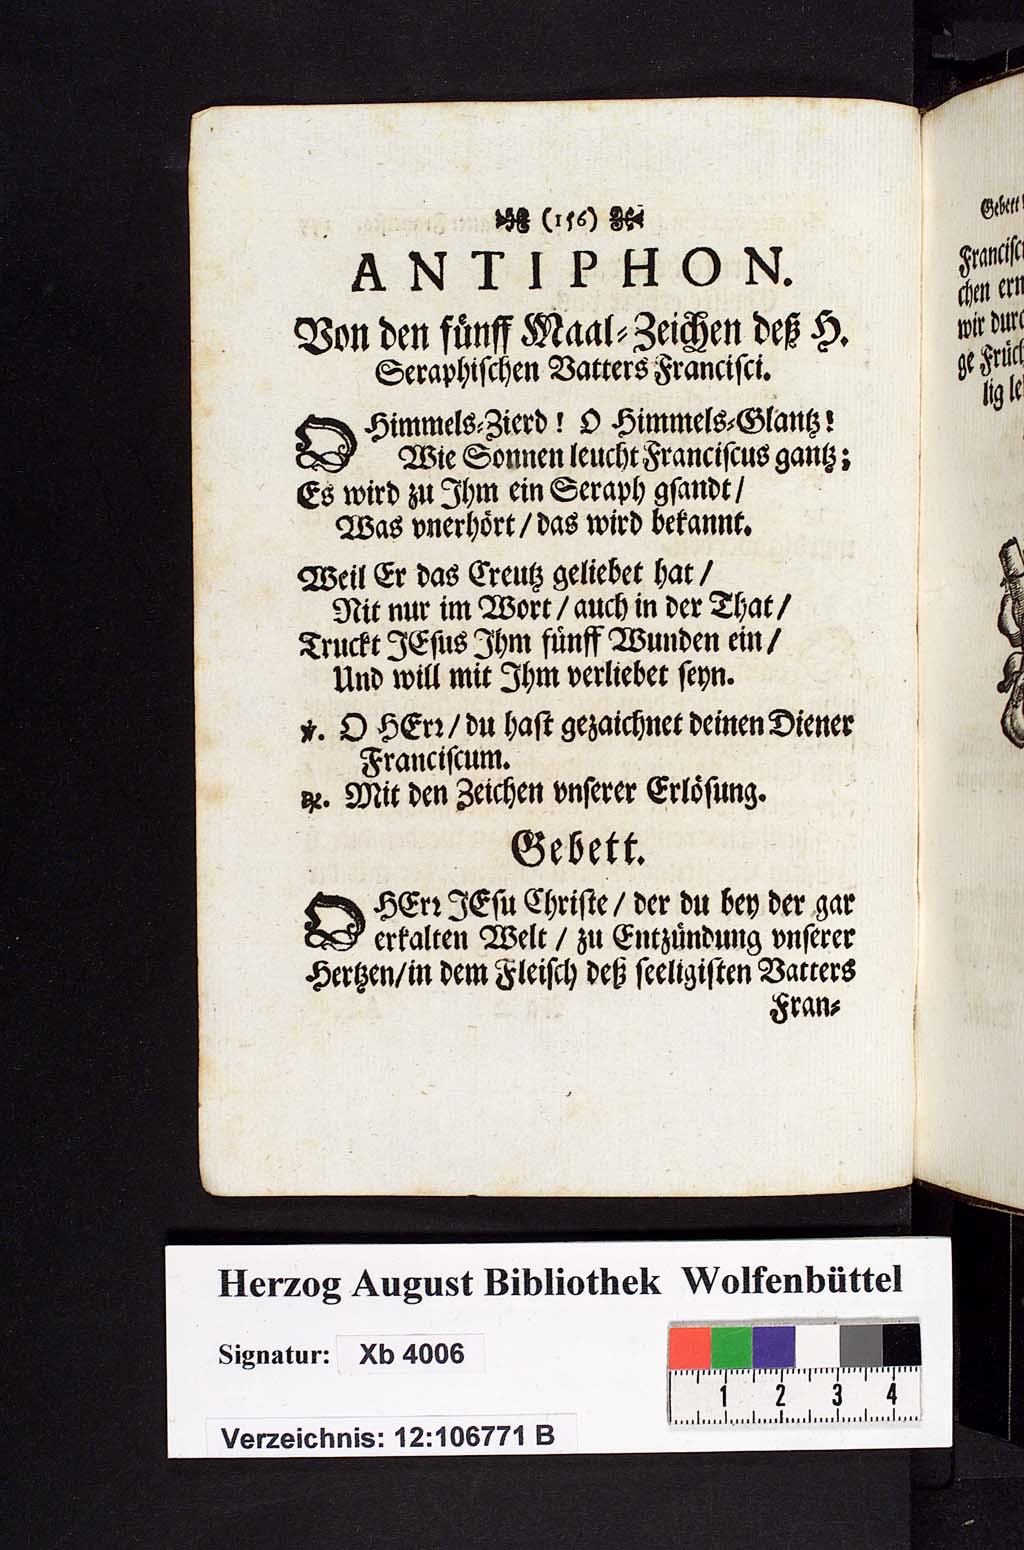 (156)
ANTIPHON.
Von den fünff Maal-Zeichen deß H.
Seraphischen Vatters Francisci.
O Himmels-Zierd! O Himmels-Glantz!
Wie Sonnen leucht Franciscus gantz;
Es wird zu Ihm ein Seraph gsandt/
Was vnerhört/ das wird bekannt.
Weil Er das Creutz geliebet hat/
Nit nur im Wort/ auch in der That/
Truckt JEsus Ihm fünff Wunden ein/
Und will mit Ihm verliebet seyn.
℣. O HErr/ du hast gezaichnet deinen Diener
Franciscum.
℟. Mit den Zeichen vnserer Erlösung.
Gebett.
O HErr JEsu Christe/ der du bey der gar
erkalten Welt/ zu Entzündung vnserer
Hertzen/ in dem Fleisch deß seeligisten Vatters
Fran-
Gebett
chen
wir
ge
lig
Herzog August Bibliothek Wolfenbüttel
Signatur: Xb 4006
1 2 3 4
Verzeichnis: 12:106771 B